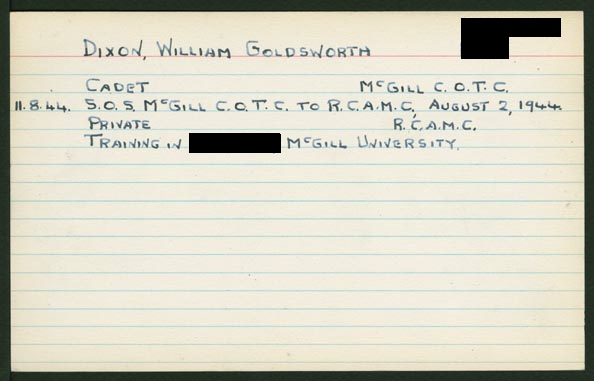 DIXON, WILLIAM GOLDSWORTH
CADET McGILL C.O.T.C.
11.8.44. S.O.S. McGILL C.O.T.C. TO R.C.A.M.C, AUGUST 2, 1944.
PRIVATE R.C.A.M.C.
TRAINING IN McGILL UNIVERSITY.